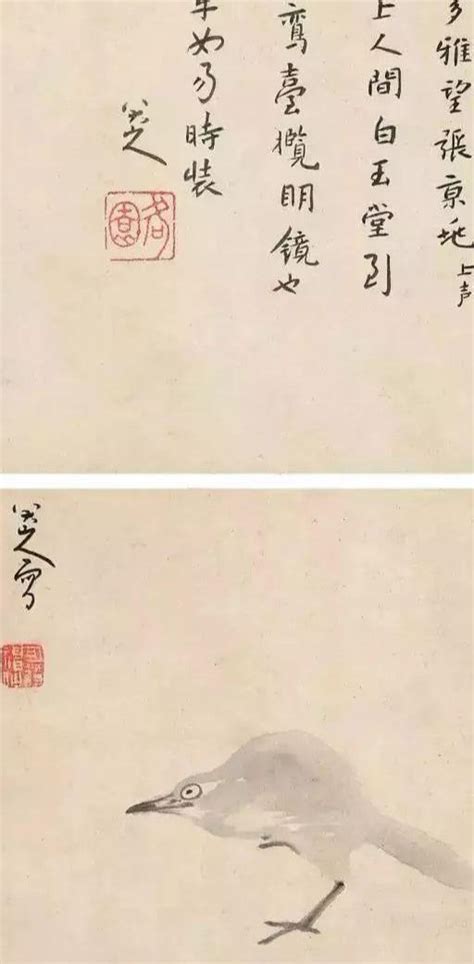 多雅望張京兆上声
上人間白玉堂到
鸞臺攬明鏡也
易時裝
八大山人
八大山人寫